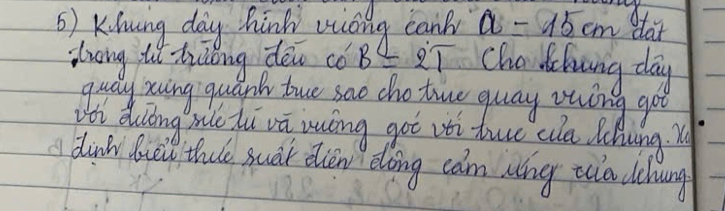 5) Khung dây hình vuông cạnh a = 15 cm đặt
trong từ trường đều có B = 2T Cho khung dây
quay xung quanh trục sao cho trục quay vuông góc
với đường sức từ và vuông góc với trục của khung. Xá
định biểu thức suất điện động cảm ứng của khung.